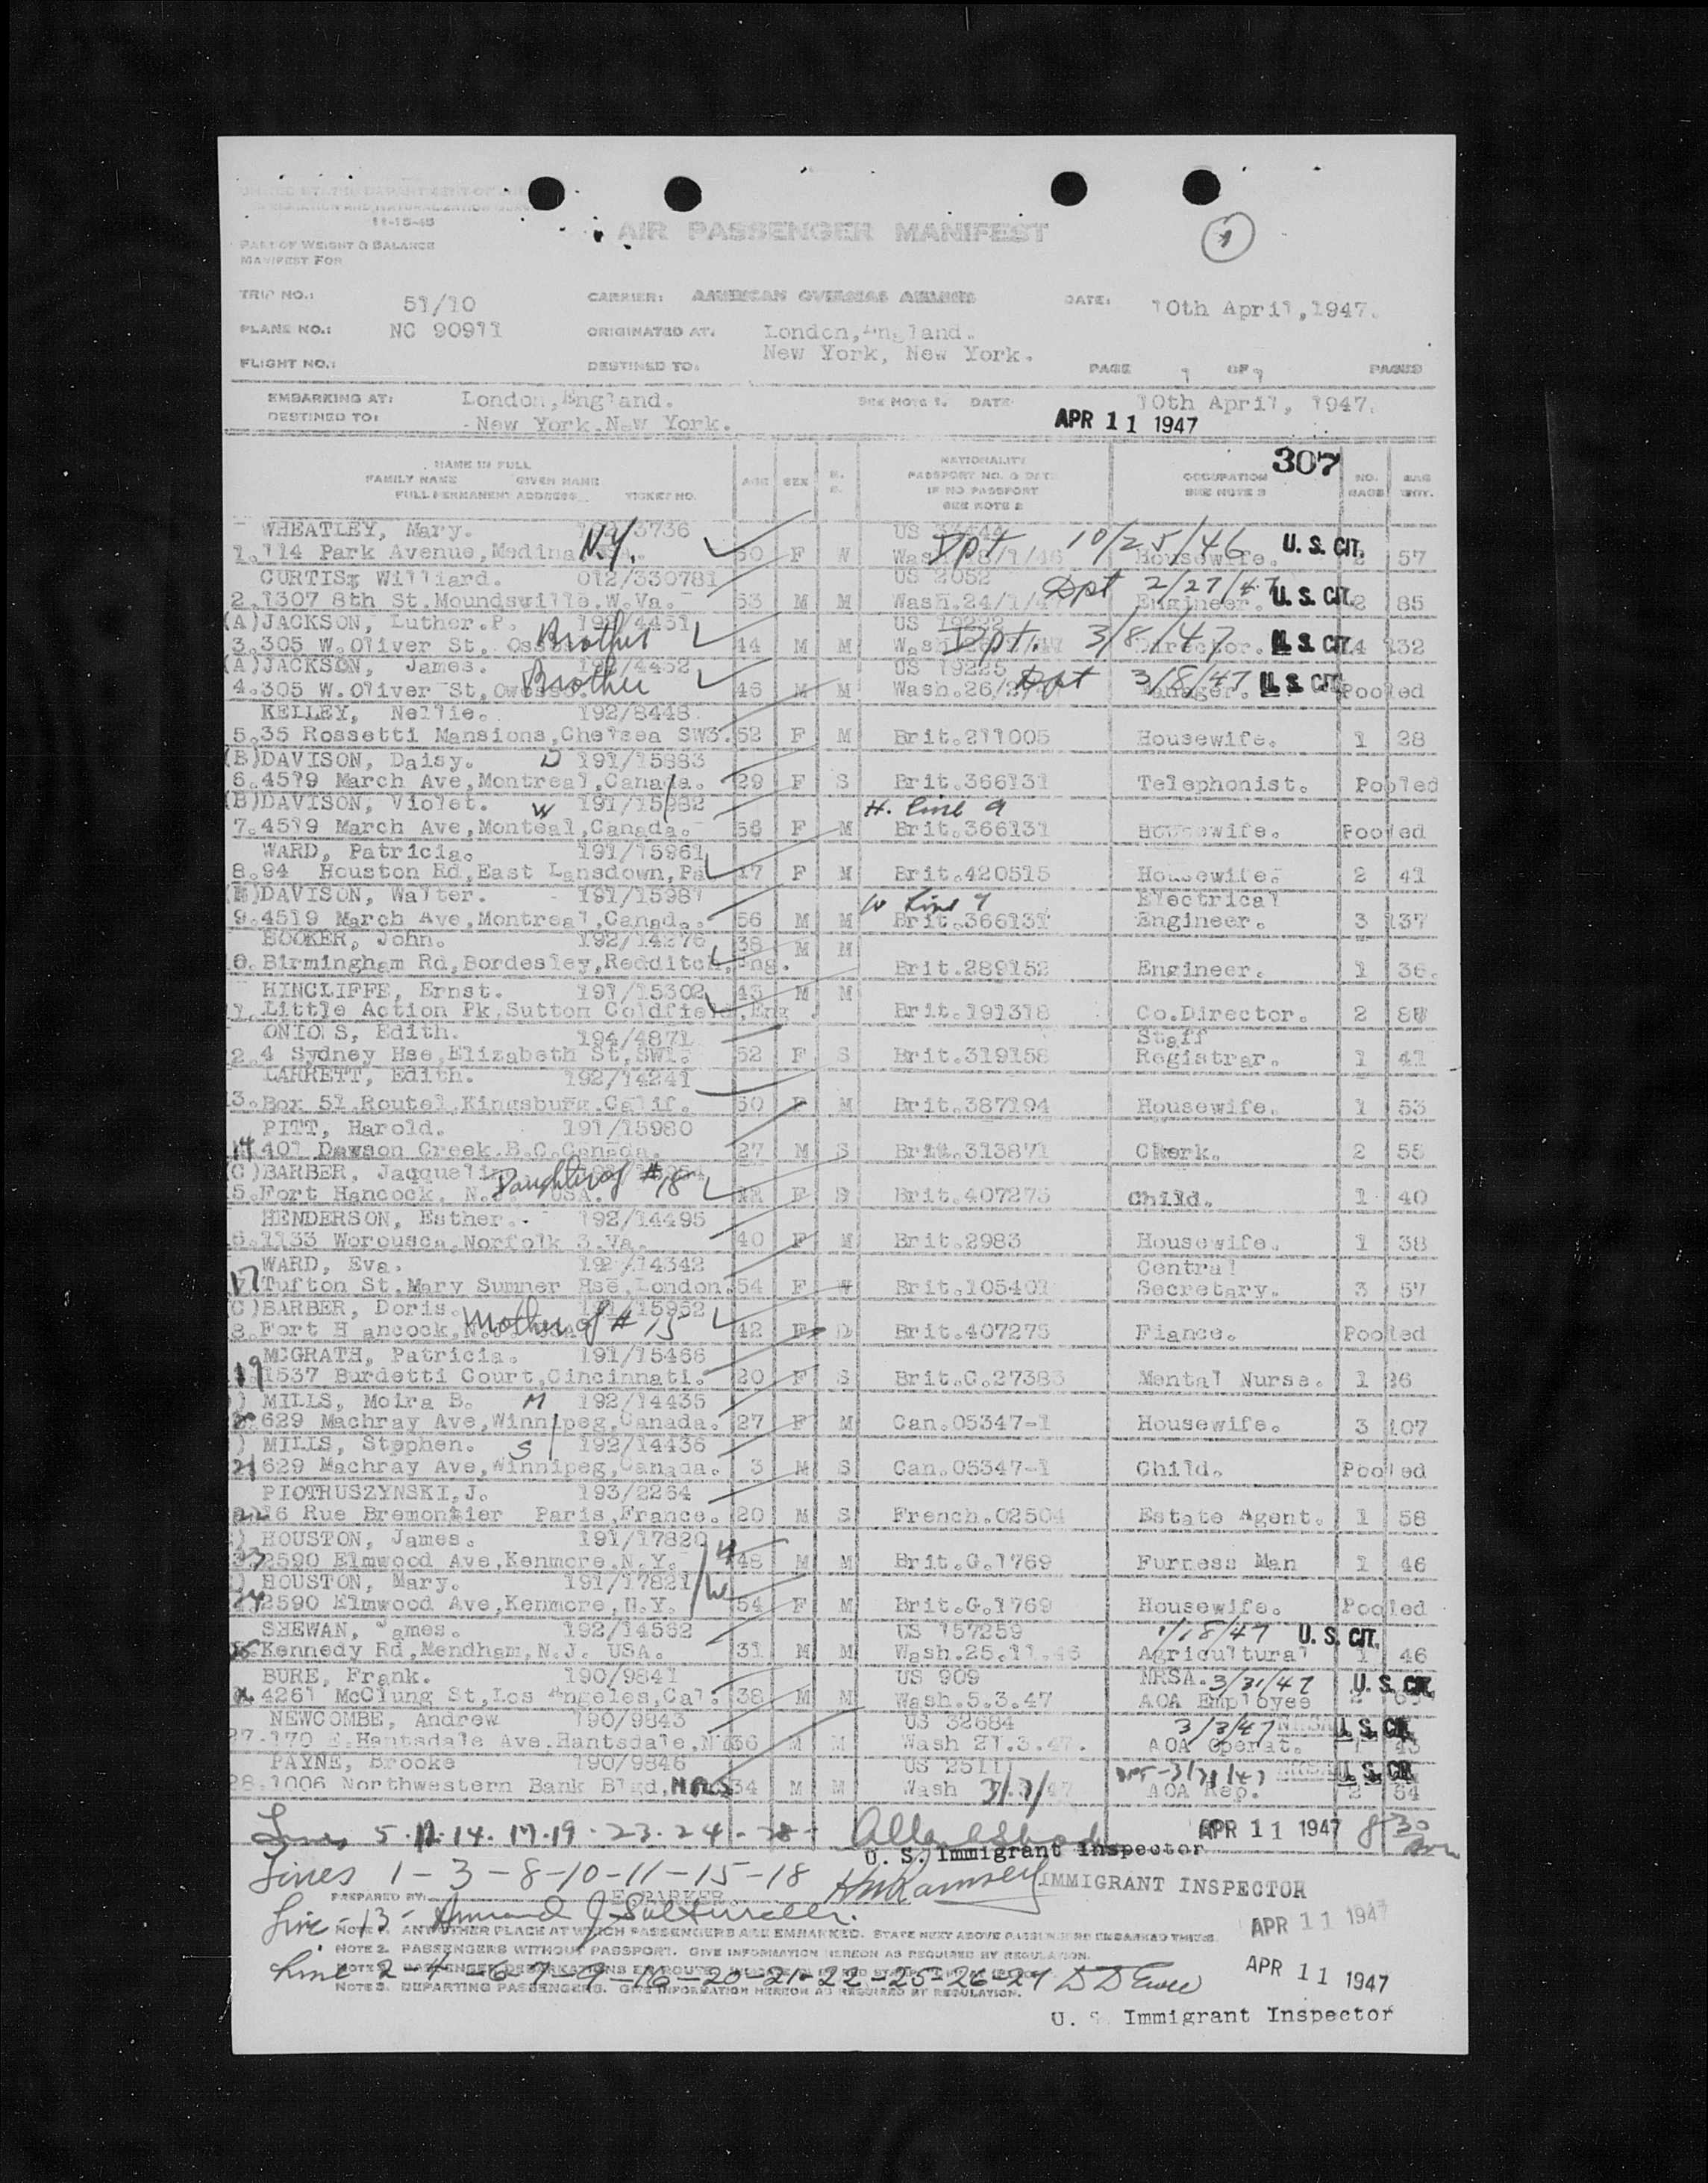 UNITED STATES DEPARTMENT OF
IMMIGRATION AND NATURALIZATION
11-15-45
AIR PASSENGER MANIFEST
1
PART OF WEIGHT & BALANCE
MANIFEST FOR
TRIP NO.: 51/10 CARRIER: AMERICAN OVERSEAS AIRLINES DATE: 10th April,1947.
PLANE NO.: NC 90911 ORIGINATED AT: London,England.
FLIGHT NO.: DESTINED TO: New York, New York. PAGE 1 OF 1 PAGES
EMBARKING AT: London,England. SEE NOTE 1. DATE 10th April, 1947.
DESTINED TO: New York.New York. APR 11 1947
307
NAME IN FULL
FAMILY NAME GIVEN NAME
FULL PERMANENT ADDRESS TICKET NO. AGE SEX NATIONALITY PASSPORT NO. & DATE IF NO PASSPORT SEE NOTE 2 OCCUPATION SEE NOTE 3 NO. BAGS BAG WHT.
WHEATLEY, Mary. 3736 US
1.114 Park Avenue,Medina N.Y. 50 F W Wash 18/1/46 Dpt 10/25/46 Housewife. U.S. CIT. 2 57
CURTIS, Williard. 012/330781 US 2052
2.1307 8th St.Moundsville.W.Va. 53 M M Wash.24/1/47 Dpt 2/27/47 Engineer. U.S. CIT. 2 85
(A)JACKSON, Luther.P. 192/4451 US 19222
3.305 W.Oliver St. Brother 44 M M Wash Dpt. 3/8/47 Director. U.S. CIT. 4 132
(A)JACKSON, James. 192/4452 US 19225
4.305 W.Oliver St,Owosso. Brother 46 M M Wash.26/2/ Dpt 3/8/47 Manager. U.S. CIT. Pooled
KELLEY, Nellie. 192/8448
5.35 Rossetti Mansions,Chelsea SW3. 52 F M Brit.211005 Housewife. 1 28
(B)DAVISON, Daisy. D 191/15983
6.4519 March Ave,Montreal,Canada. 29 F S Brit.366131 Telephonist. Pooled
(B)DAVISON, Violet. W 191/15982 H. Line 9
7.4519 March Ave,Monteal,Canada. 56 F M Brit.366131 Housewife. Pooled
WARD, Patricia. 191/15961
8.94 Houston Rd,East Lansdown,Pa 17 F M Brit.420515 Housewife. 2 41
(B)DAVISON, Walter. 191/15981 W Line 7 Electrical
9.4519 March Ave,Montreal,Canad. 56 M M Brit.366131 Engineer. 3 137
BOOKER, John. 192/14276 38 M M
0. Birmingham Rd,Bordesley,Redditch,Eng. Brit.289152 Engineer. 1 36.
HINCLIFFE, Ernst. 191/15302 43 M M
1.Little Action Pk,Sutton Coldfield,Eng Brit.191318 Co.Director. 2 87
ONIONS, Edith. 194/4871 Staff
2.4 Sydney Hse,Elizabeth St,SW1. 52 F S Brit.319158 Registrar. 1 41
LARRETT, Edith. 192/14241
3.Box 51 Route1 Kingsburg.Calif. 50 F M Brit.387194 Housewife. 1 53
PITT, Harold. 191/15980
14 401 Dawson Creek.B.C.Canada. 27 M S Brit.313871 Clerk. 2 55
(C)BARBER, Jacqueline
5.Fort Hancock, N.J. USA. Daughter of #18 F S Brit.407275 Child. 1 40
HENDERSON, Esther. 192/14495
6.1133 Worousca.Norfolk 3.Va. 40 F M Brit.2983 Housewife. 1 38
WARD, Eva. 192/14342 Central
17 Tufton St.Mary Sumner Hse,London. 54 F W Brit.105401 Secretary. 3 57
(C)BARBER, Doris. 15952
8.Fort Hancock, Mother of #15 42 F D Brit.407275 Fiance. Pooled
MCGRATH, Patricia. 191/15466
19 1537 Burdetti Court,Cincinnati. 20 F S Brit.C.27383 Mental Nurse. 1 26
) MILLS, Moira B. M 192/14435
629 Machray Ave,Winnipeg,Canada. 27 F M Can.05347-1 Housewife. 3 107
) MILLS, Stephen. S 192/14436
21 629 Machray Ave,Winnipeg,Canada. 3 M S Can.05347-1 Child. Pooled
PIOTRUSZYNSKI,J. 193/2264
22 16 Rue Bremontier Paris,France. 20 M S French.02504 Estate Agent. 1 58
) HOUSTON, James. 191/17820
23 2590 Elmwood Ave,Kenmore.N.Y. H 48 M M Brit.G.1769 Furness Man 1 46
) HOUSTON, Mary. 191/17821
24 2590 Elmwood Ave,Kenmore,N.Y. W 54 F M Brit.G.1769 Housewife. Pooled
SHEWAN, James. 192/14562 US 157259 1/18/47 U.S. CIT.
Kennedy Rd,Mendham,N.J. USA. 31 M M Wash.25.11.46 Agricultural 1 46
BURE, Frank. 190/9841 US 909 NRSA. 3/31/47 U.S. CIT.
4261 McClung St,Los Angeles,Cal. 38 M M Wash.5.3.47 AOA Employee 2
NEWCOMBE, Andrew 190/9843 US 32684 3/3/47 U.S. CIT.
27.170 E.Hantsdale Ave.Hantsdale,NY 36 M M Wash 21.3.47. AOA Operat. 1 43
PAYNE, Brooke 190/9846 US 2511 DPT-3/31/47 U.S. CIT.
28.1006 Northwestern Bank Blgd, 34 M M Wash 3/3/47 AOA Rep. 2 54
Lines 5.12.14.17.19.23.24.-28- APR 11 1947 830 am
U. S. Immigrant Inspector
Lines 1-3-8-10-11-15-18 HM Ramsey IMMIGRANT INSPECTOR
PREPARED BY: E.PARKER
Line-13- APR 11 1947
NOTE 1. ANY OTHER PLACE AT WHICH PASSENGERS ARE EMBARKED. STATE NEXT ABOVE PASSENGERS EMBARKED THERE.
NOTE 2. PASSENGERS WITHOUT PASSPORT. GIVE INFORMATION HEREON AS REQUIRED BY REGULATION.
Line 2-4-6-7-9-16-20-21-22-25-26-27 APR 11 1947
NOTE 3. DEPARTING PASSENGERS. GIVE INFORMATION HEREON AS REQUIRED BY REGULATION.
U. S. Immigrant Inspector